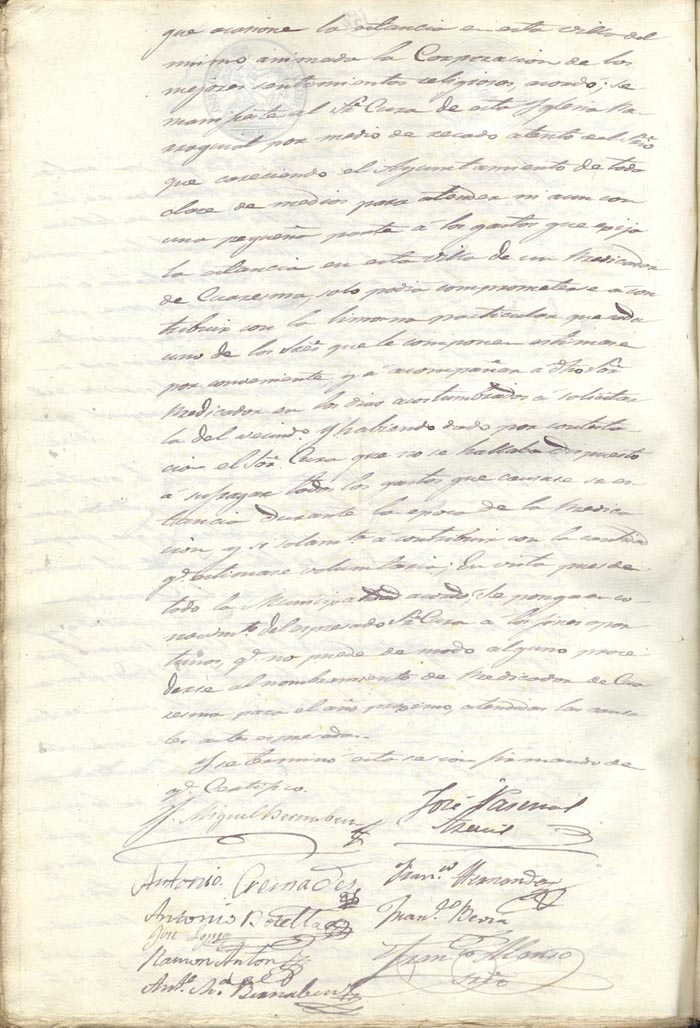 que ocasione la estancia en esta villa del
mismo animada la Corporacion de los
mejores sentimientos religiosos, acordó: se
manifieste al Sr. Cura de esta Iglesia Pa-
rroquial por medio de recado atento del Srio
que careciendo el Ayuntamiento de toda
clase de medios para atender ni aun con
una pequeña parte á los gastos que exija
la estancia en esta villa de un Predicador
de Cuaresma, solo podia comprometerse a con
tribuir con la limosna particular que cada
uno de los Sres que le componen estimare
por conveniente y á acompañar a dho Sor
Predicador en los dias acostumbrados a solicitar
la del vecindo. y habiendo dado por contesta
cion el Sor. Cura que no se hallaba dispuesto
á sufragar todos los gastos que causare su es-
tancia durante la epoca de la Predica
cion, y si solamte a contribuir con la cantidad
q. estimare voluntaria; En vista pues de
todo la Municipalidad acordó: Se ponga en co-
nocimto del espresado Sr. Cura a los fines opor
tunos, q. no puede de modo alguno proce
derse al nombramiento de Predicador de Cua
resma para el año procsimo, atendidas las causa
les antes espresadas.
Y se terminó esta sesion firmando de
q. Certifico.
Miguel Bernabeu
José Pascual
Antonio Cremades
Franco Hernandez
Antonio Botella
Franco Devia
José Lopez
Ramon Anton
Franco Alonso
Anto Ma Bernabeu
Srio